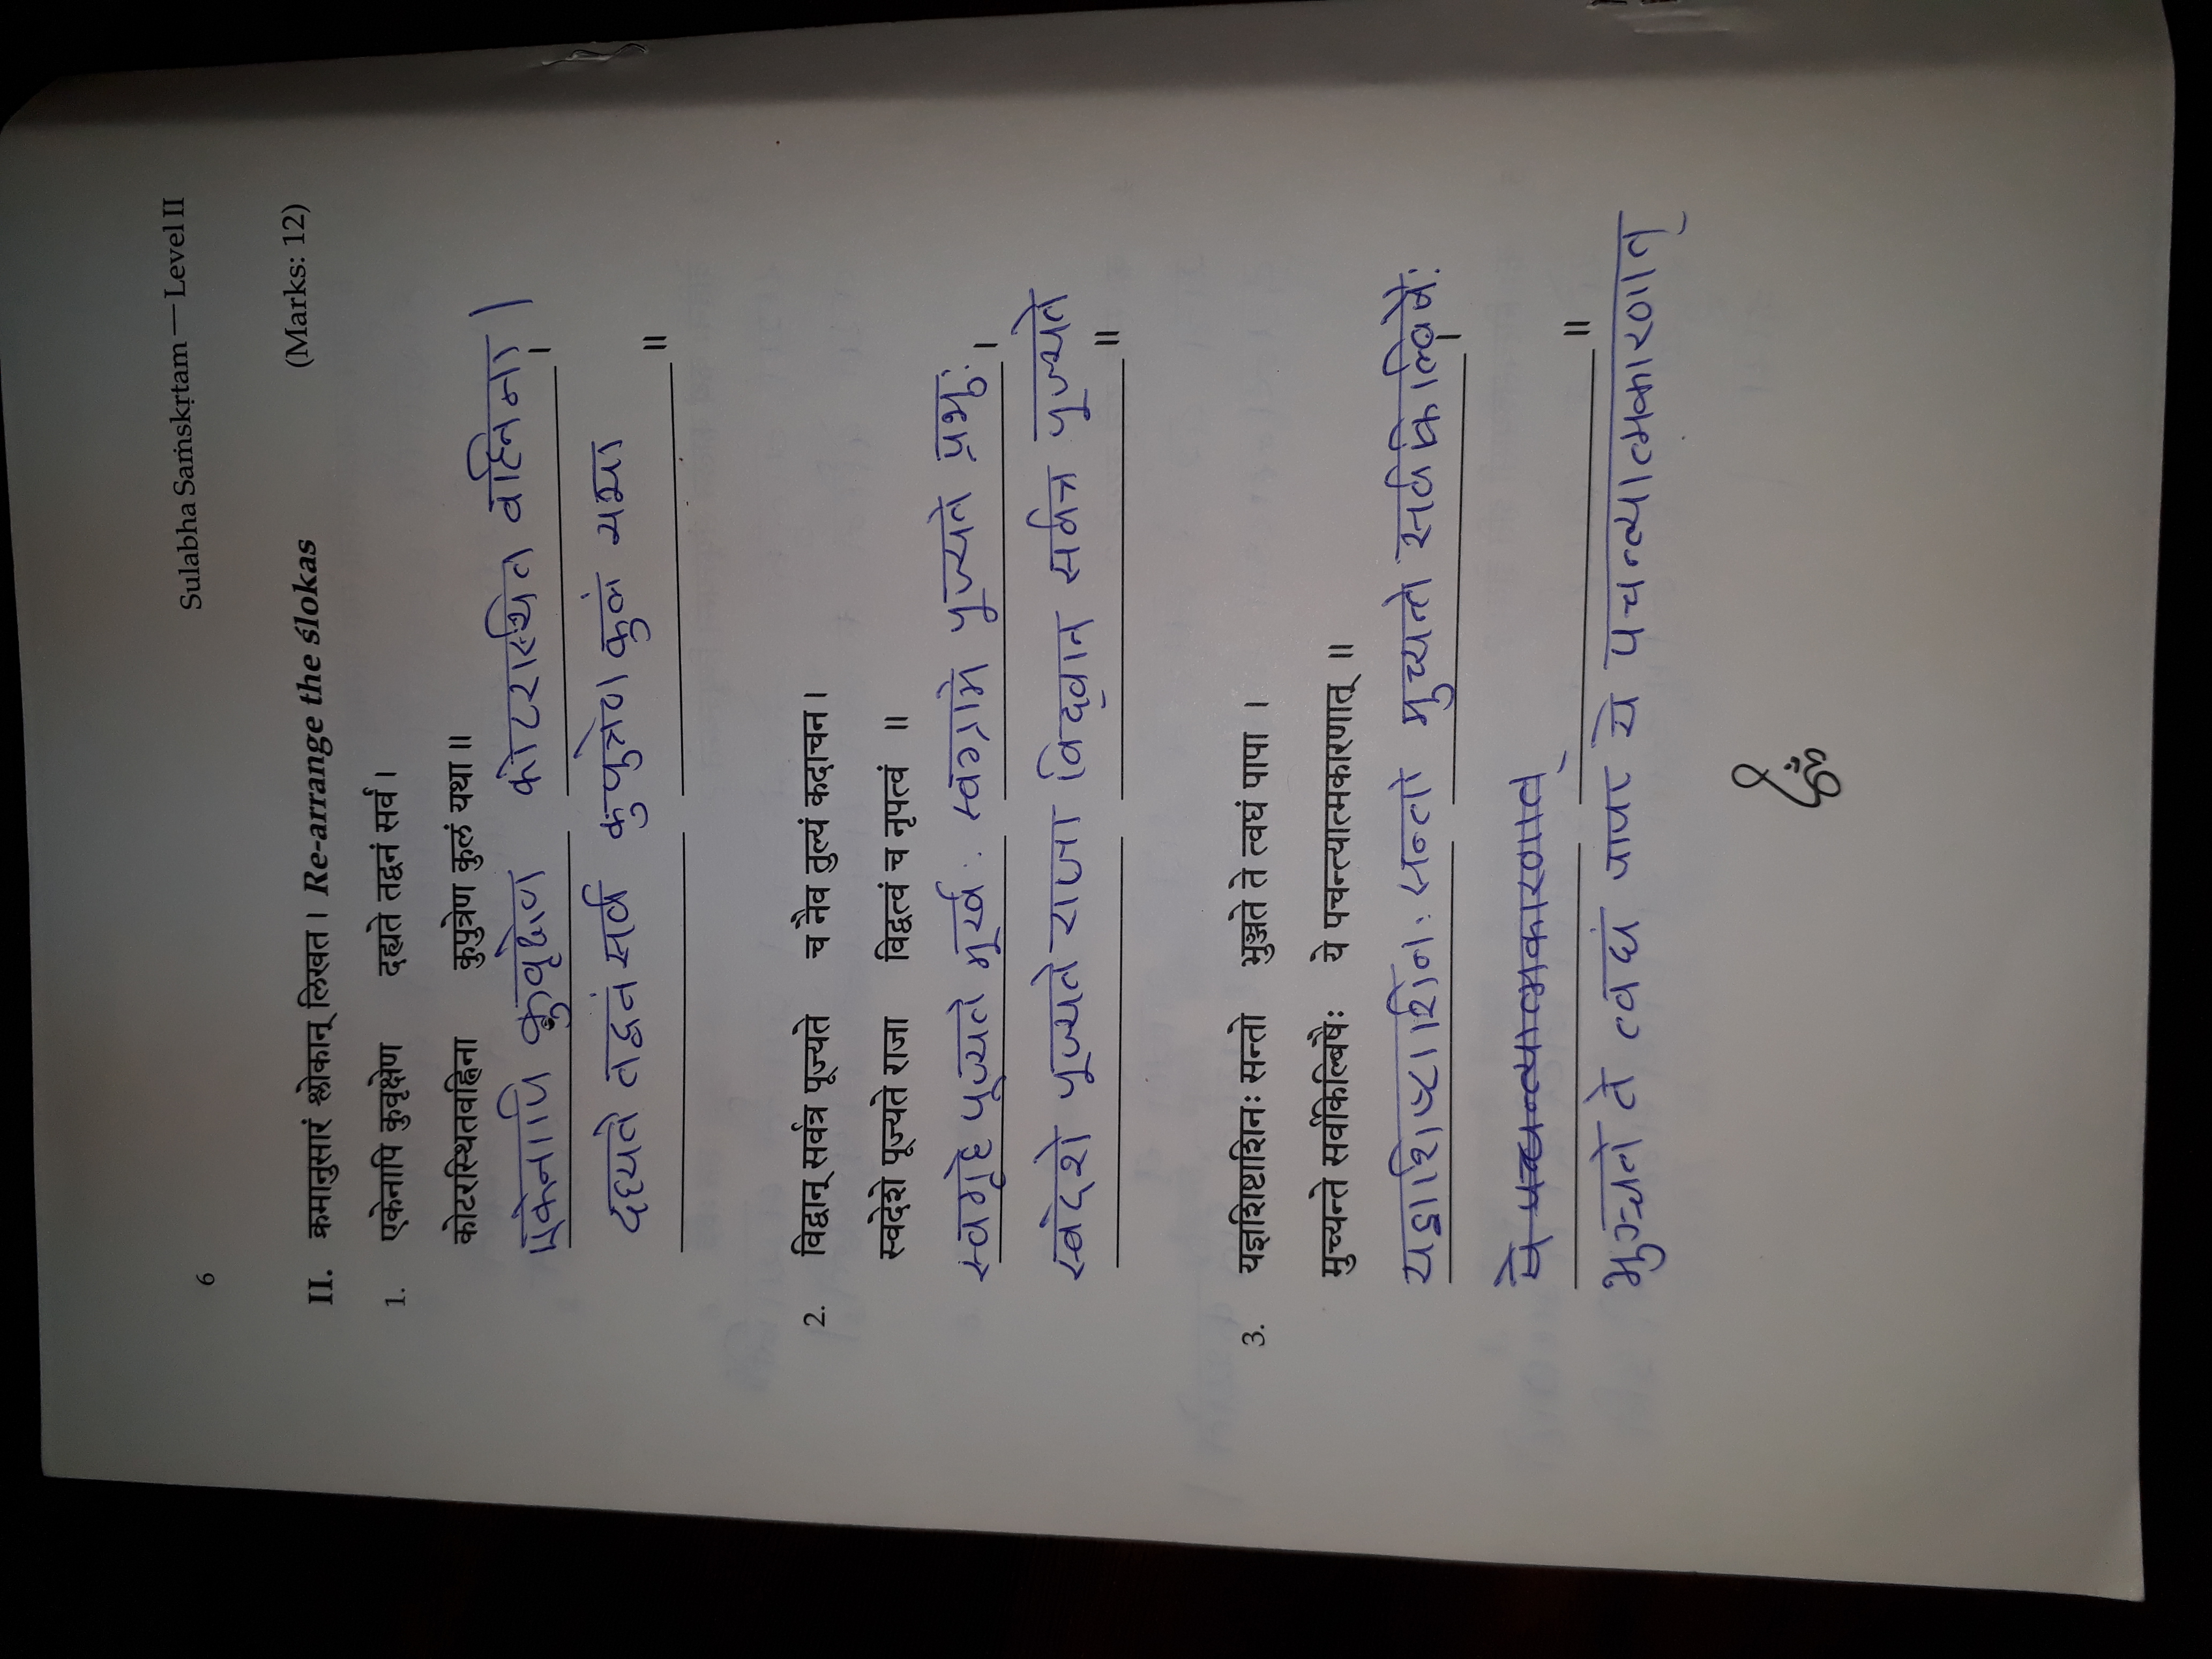 6 Sulabha Saṁskṛtam — Level II
II. क्रमानुसारं श्लोकान् लिखत । Re-arrange the ślokas (Marks: 12)
1. एकेनापि कुवृक्षेण दह्यते तद्वनं सर्वं ।
कोटरस्थितवह्निना कुपुत्रेण कुलं यथा ॥
एकेनापि कुवृक्षेण कोटरास्थित वह्निना । |
दह्यते तद्वनं सर्व कुपुत्रेण कुलं यथा ॥
2. विद्वान् सर्वत्र पूज्यते च नैव तुल्यं कदाचन ।
स्वदेशे पूज्यते राजा विद्वत्वं च नृपत्वं ॥
स्वगृहे पूज्यते मूर्ख : स्वग्रामे पूज्यते प्रभु: ।
स्वदेशे पूज्यते राजा विद्वान सर्वत्र पूज्यते ॥
3. यज्ञशिष्टाशिनः सन्तो भुञ्जते ते त्वघं पापा ।
मुच्यन्ते सर्वकिल्बिषैः ये पचन्त्यात्मकारणात् ॥
यज्ञाशिष्टाशिन: सन्तो मुच्यन्ते सर्वकिल्बिषै: ।
ये पचन्त्यात्मकारणात् ॥
भुञ्जते ते त्वघं पापा ये पचन्त्यात्मकारणात्
ॐ